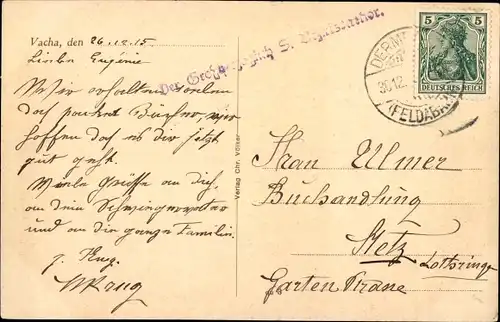 Vacha, den 26.12.15
Liebe Eugénie
Wir erhalten soeben
das Bücher, wir
hoffen daß es dir jetzt
gut geht.
Viele Grüße an dich,
an dein
und an die ganze Familie.
Verlag Chr. Völker
Der Großherzoglich S. Bezirksdirektor.
5 5
DEUTSCHES REICH
30.12.
(FELDABAHN)
Frau Ulmer
Buchhandlung
Metz
Lothringen
Garten Strane